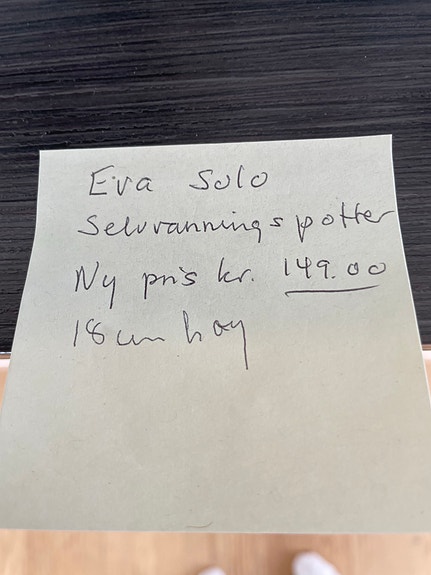 Eva Solo
Selvvanningspotter
Ny pris kr. 149.00
18 cm høy